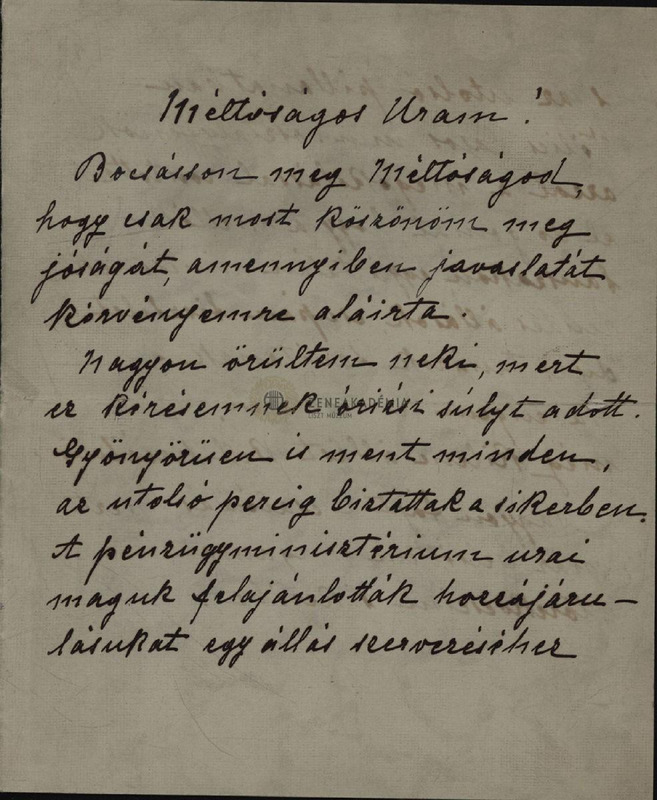 Méltóságos Uram!
Bocsásson meg Méltóságod,
hogy csak most köszönöm meg
jóságát, amennyiben javaslatát
kérvényemre aláirta.
Nagyon örültem neki, mert
ez kérésemnek óriási súlyt adott.
ZENEAKADÉMIA
LISZT MÚZEUM
Gyönyörüen is ment minden,
az utolsó percig biztattak a sikerben.
A pénzügyminisztérium urai
maguk felajánlották hozzájáru-
lásukat egy állás szervezéséhez